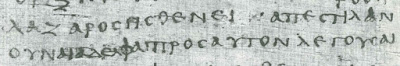 ΛΑΖΑΡΟΣ ΗΣΘΕΝΕΙ · ΑΠΕΣΤΙΛΑΝ
ΟΥΝ ΑΙ ΑΔΕΛΦΑΙ ΠΡΟΣ ΑΥΤΟΝ ΛΕΓΟΥΣΑΙ